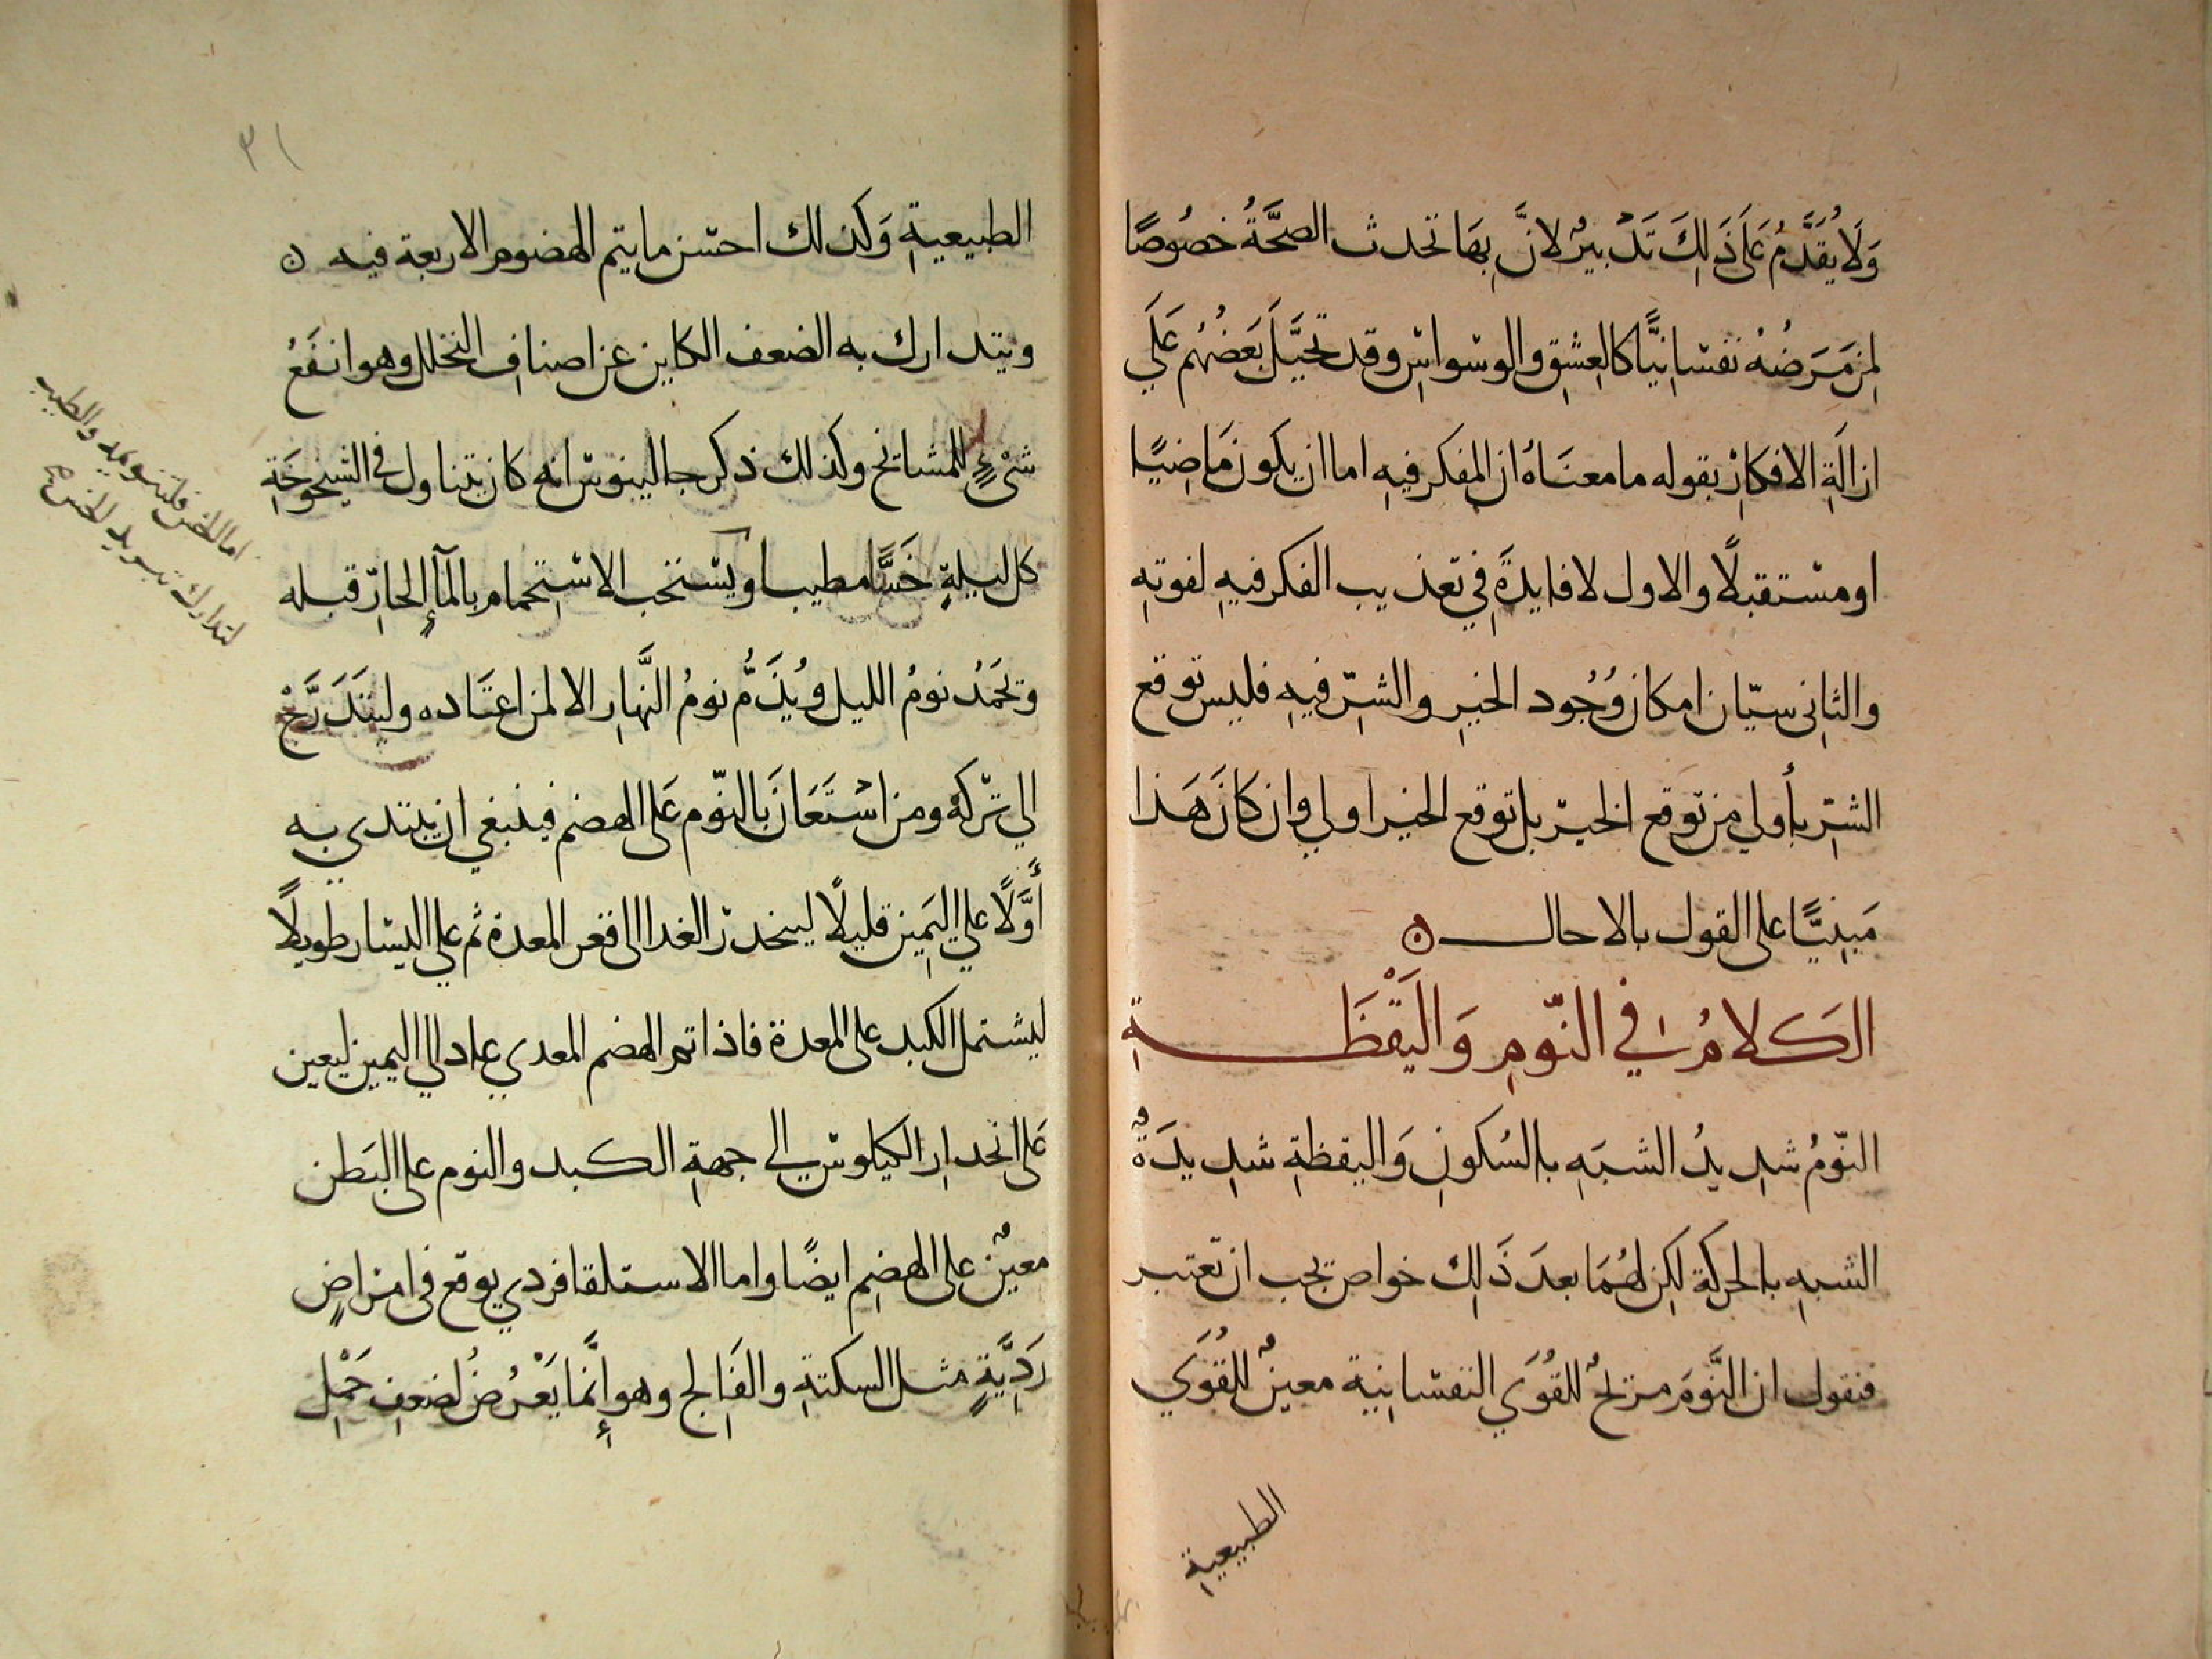 وَلَا يُقَدَّمُ عَلَى ذَلِكَ تَدْبِيرٌ لانَّ بِهَا تحدث الصحَّةُ خصُوصًا
لمن مَرَضُهُ نفسانيًّا كالعِشِق والوسواس وقد تحيَّلَ بَعَضُهُم عَلَي
ازالَةِ الافكارْ بقوله ما معنَاهُ ان المفكر فيهِ اما ان يكون مَاضِيًا
او مستقبلًا والاول لا فايدةَ في تعذيب الفكر فيهِ لفوتهِ
والثاني سيّان امكان وُجُود الخيرِ والشرّ فيهِ فليس توقع
الشرّ بأولي من توقع الخير بل توقع الخير اولي وان كانَ هَذا
مَبنيًّا على القول بالاحال ه
الكلامُ في النّومِ وَاليَقْظَةِ
النّومُ شديدُ الشبَهِ بالسُكونِ وَاليقظةِ شدِيدَةٌ
الشبهِ بالحركة لكِن لهُمَا بعدَ ذَلِك خواص يجب ان تعتبر
فنقول ان النَّومَ مزيحٌ للقُوَي النفسانية معينٌ للقُوَي
الطبيعية
٣١
الطبيعيةِ وَكذلك احسن ما يتم الهضوم الاربعة فيه ه
ويتدارك به الضعف الكاين عن اصنافِ التخلل وهو انفَعُ
شئٍ للمشايخ وكذلك ذكر جالينوس انه كان يتناول في الشيخوخَةِ
كل ليلةٍ خَسًّا مطيبا ويستحب الاستِحمام بالمآءِ الحارّ قبله
ويحمَدُ نومُ الليل ويُذَمُّ نومُ النَّهارِ الا لمن اعتَاده وليتَدَرَّجْ
الي تركهْ ومن استَعَانَ بالنّوم عَلى الهضم فينبغي ان يبتدي به
أوَّلًا علي اليَمِين قليلًا لينحدر الغدا الى قعر المعدة ثم علي اليسار طويلًا
ليشتمل الكبد على المعدة فاذا تم الهضم المعدي عاد الي اليمين ليعين
عَلى انحدارِ الكيلوس الي جهةِ الكبد والنوم على البَطن
معينٌ على الهضِم ايضًا واما الاستلقا فردي يوقع في امراضٍ
رَدِيَّةٍ مثل السكتهِ والفَالج وهو إنَّما يَعْرُضُ لضعفِ حَمْلِ
اما الخس فلتنويمه والطيب
لتدارك تبريد الخس